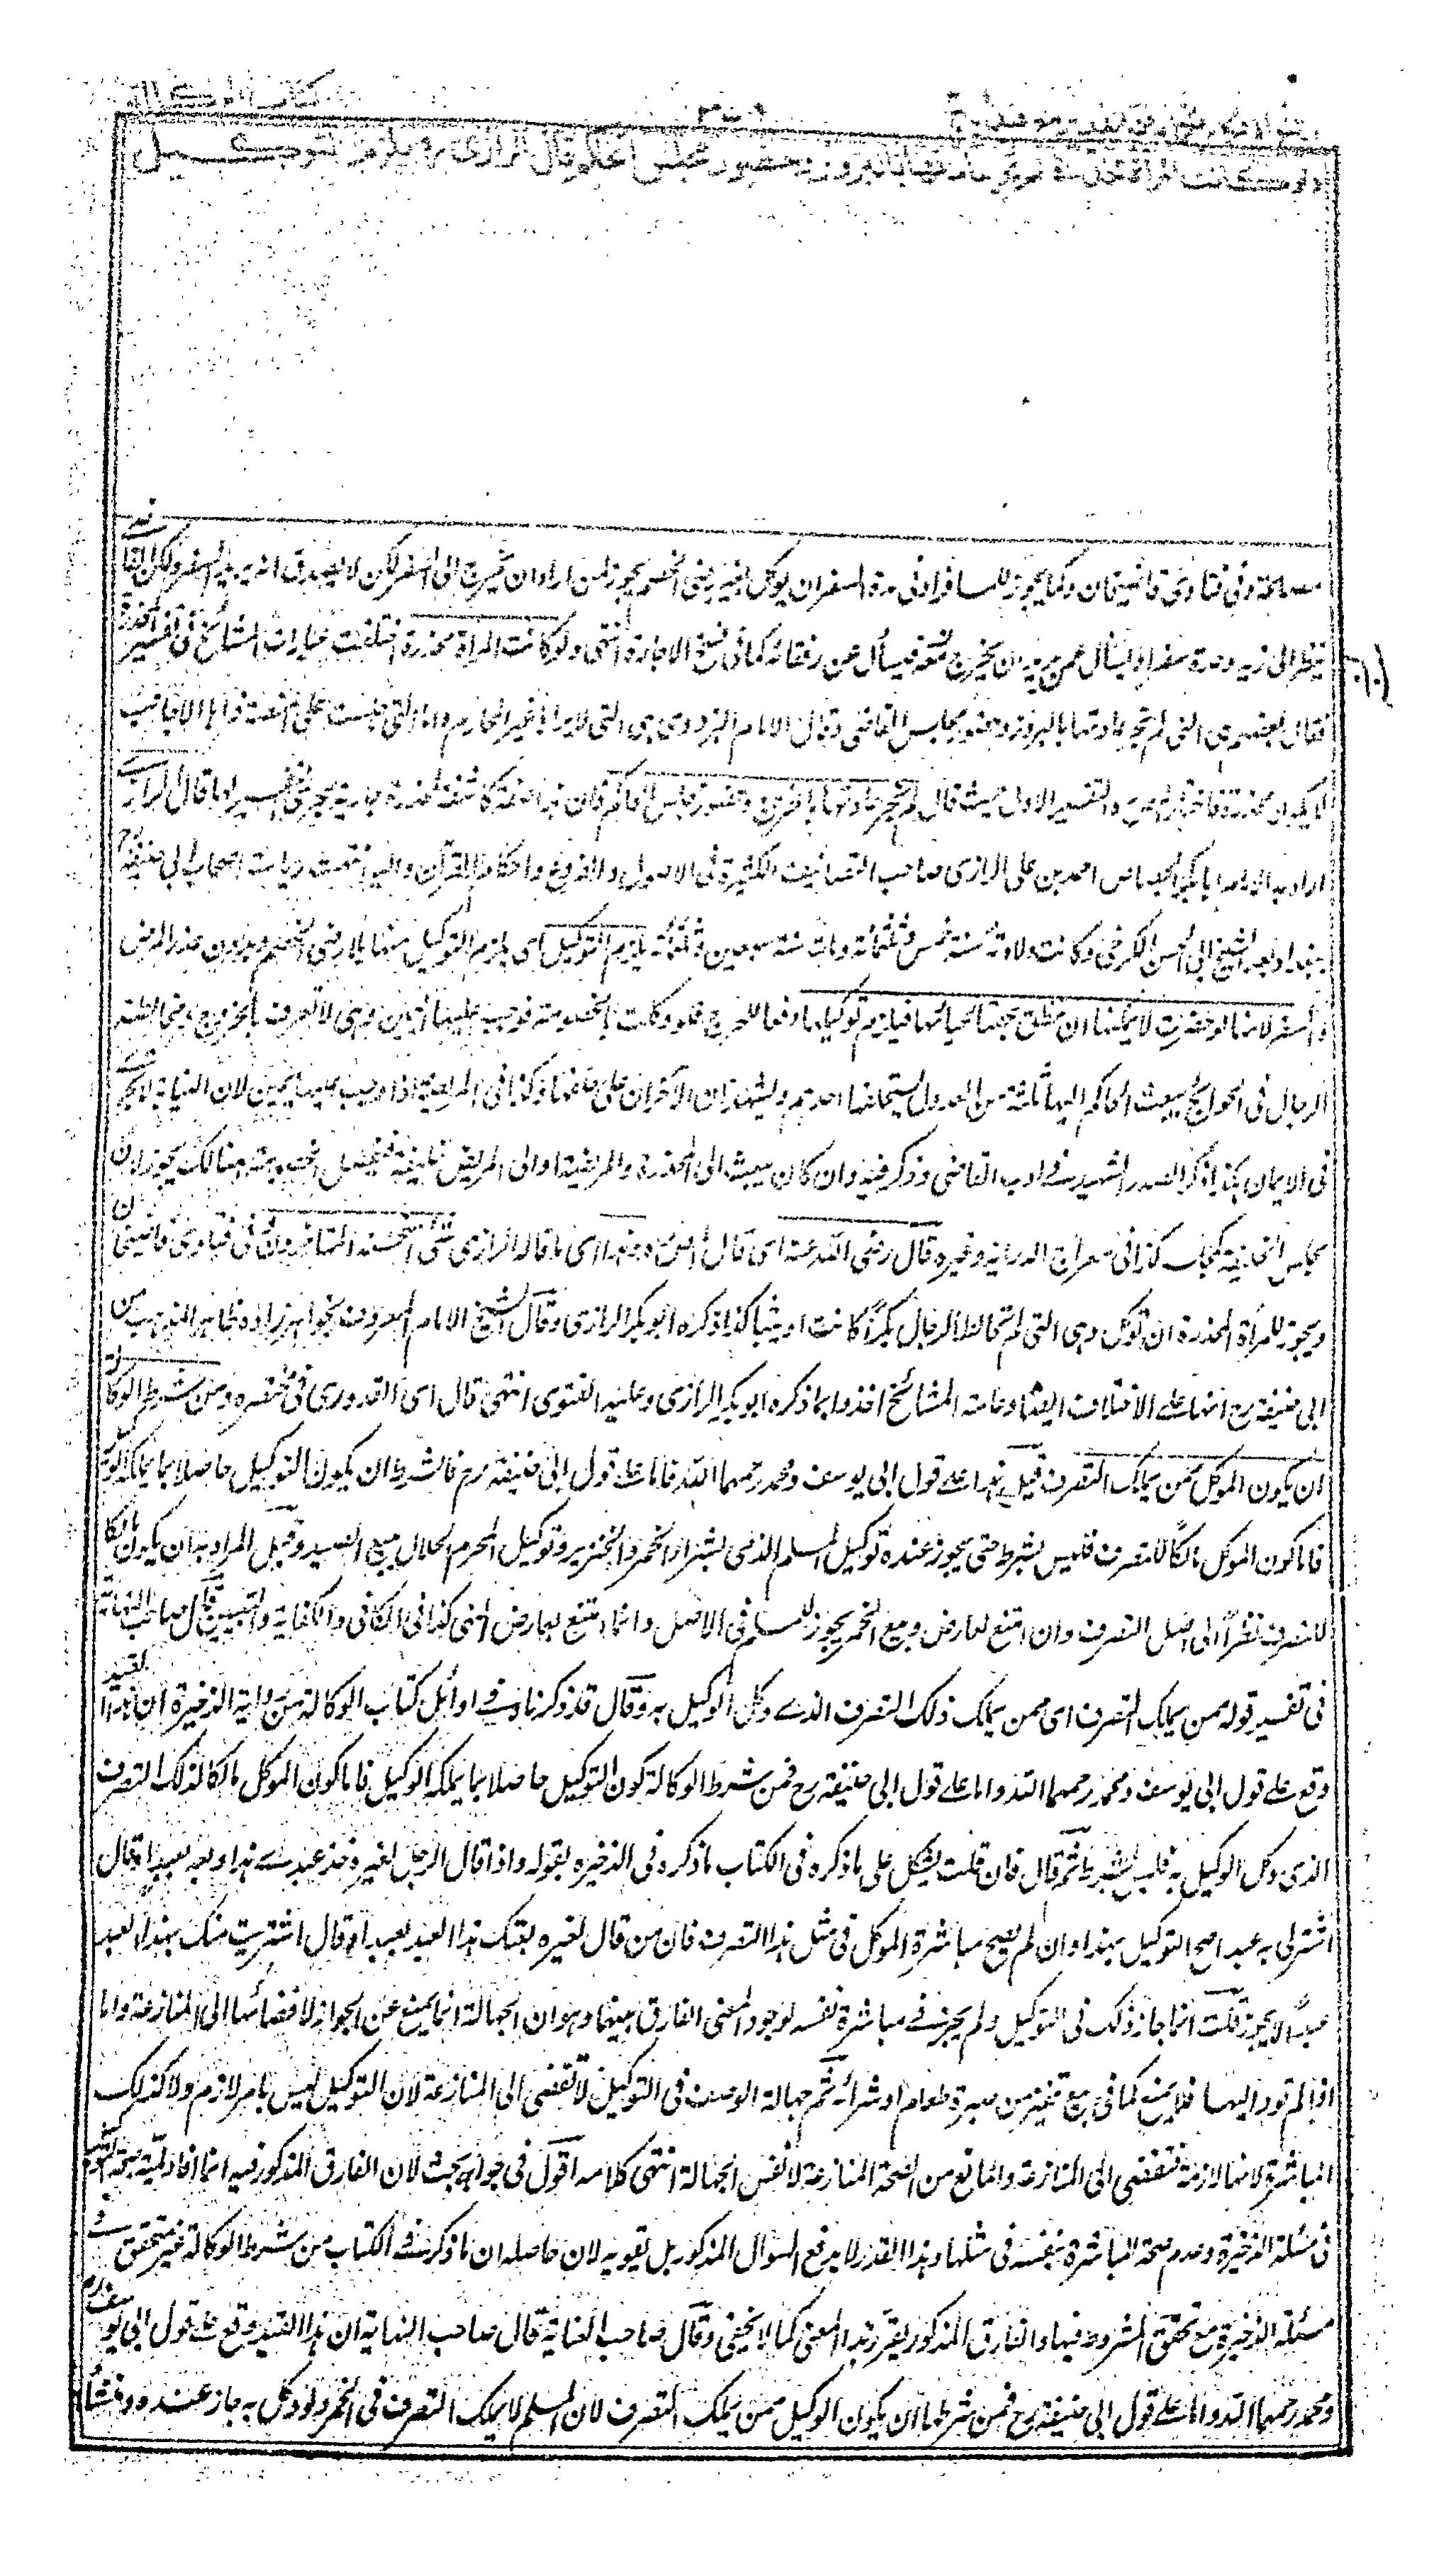 كتاب الوكالة
ولو كانت المرأة مخدرة لم تجر عادتها بالبروز وحضور مجلس الحكم قال الرازي رح يلزم التوكيل
وفي فتاوى قاضيخان وكما يجوز للمسافر في مدة السفر ان يوكل بغير رضى الخصم يجوز لمن اراد ان يخرج الى السفر لكن لا يصدق انه يريد السفر ولكن القاضي
ينظر الى زيه وعدة سفره او ليسأل عمن يريد ان يخرج معه فيسأل عن رفقائه كما في فسخ الاجارة انتهى ولو كانت المرأة مخدرة اختلفت عبارات المشائخ في تفسير المخدرة
فقال بعضهم هي التي لم تجر عادتها بالبروز وحضور مجالس القاضي وقال الامام البزدوي هي التي لا يراها غير المحارم واما التي جلست على المنصة فرآها الاجانب
لا يكون مخدرة فاختار المص التفسير الاول حيث قال لم تجر عادتها بالبروز وحضور مجلس الحاكم فان هذا صفة كاشفة للمخدرة جارية مجرى التفسير لها قال الرازي
اراد به الامام ابا بكر الجصاص احمد بن علي الرازي صاحب التصانيف الكثيرة في الاصول والفروع واحكام القرآن واليه انتهت رياسة اصحاب ابي حنيفة رح
ببغداد بعد الشيخ ابي الحسن الكرخي وكانت ولادته سنة خمس وثلثمائة ومات سنة سبعين وثلثمائة يلزم التوكيل اي يلزم التوكيل منها بلا رضى الخصم وبدون عذر المرض
والسفر لانها لو حضرت لا يمكنها ان تنطق بحقها لحيائها فيلزم توكيلها دفعا للحرج فلو وكلت بالخصومة فوجب عليها اليمين وهي لا تعرف بالخروج ومخالطة
الرجال في الحوائج يبعث الحاكم اليها ثلثة من العدول يستحلفها احدهم ويشهد الآخران على حلفها وكذا في المريضة اذا وجب عليها يمين لان النيابة لا تجري
في الايمان هكذا ذكر الصدر الشهيد في ادب القاضي وذكر فيه وان كان يبعث الى المخدرة والمريضة او الى المريض خليفة فيفصل الخصومة هنالك يجوز لان
مجلس الخليفة كمجلسه كذا في معراج الدراية وغيره قال رضى الله عنه اي قال المص وهذا اي ما قاله الرازي شئ استحسنه المتاخرون في فتاوى قاضيخان
ويجوز للمرأة المخدرة ان توكل وهي التي لم تخالط الرجال بكرا كانت او ثيبا كذا ذكره ابو بكر الرازي وقال الشيخ الامام المعروف بخواهر زاده ظاهر المذهب عن
ابي حنيفة رح انها على الاختلاف ايضا وعامة المشائخ اخذوا بما ذكره ابو بكر الرازي وعليه الفتوى انتهى قال اي القدوري في مختصره ومن شرط الوكالة
ان يكون الموكل ممن يملك التصرف قيل هذا على قول ابي يوسف ومحمد رحمهما الله فاما على قول ابي حنيفة رح فالشرط ان يكون التوكيل حاصلا بما يملكه الوكيل
فاما كون الموكل مالكا للتصرف فليس بشرط حتى يجوز عنده توكيل المسلم الذمي بشراء الخمر والخنزير وتوكيل المحرم الحلال ببيع الصيد وقيل المراد به ان يكون مالكا
للتصرف نظرا الى اصل التصرف وان امتنع لعارض وبيع الخمر يجوز للمسلم في الاصل وانما امتنع لعارض النهي كذا في الكافي والكفاية والتبيين قال صاحب النهاية
في تفسير قوله ممن يملك التصرف اي ممن يملك ذلك التصرف الذي وكل الوكيل به وقال قد ذكرنا في اوائل كتاب الوكالة من رواية الذخيرة ان هذا القيد
وقع على قول ابي يوسف ومحمد رحمهما الله واما على قول ابي حنيفة رح فمن شرط الوكالة كون التوكيل حاصلا بما يملكه الوكيل فاما كون الموكل مالكا لذلك التصرف
الذي وكل الوكيل به فليس بشرط ثم قال فان قلت يشكل على ما ذكره في الكتاب ما ذكره في الذخيره بقوله واذا قال الرجل لغيره خذ عبدي هذا وبعه بعبد او قال
اشتر لي به عبدا صح التوكيل بهذا وان لم يصح مباشرة الموكل في مثل هذا التصرف فان من قال لغيره بعتك هذا العبد بعبد او قال اشتريت منك بهذا العبد
عبدا لا يجوز قلت انما جاز ذلك في التوكيل ولم يجز في مباشرة نفسه لوجود المعنى الفارق بينهما وهو ان الجهالة انما يمنع عن الجواز لافضائها الى المنازعة واما
اذا لم تؤد اليها فلا يمنع كما في بيع قفيز من صبرة طعام او شرائه ثم جهالة الوصف في التوكيل لا تفضى الى المنازعة لان التوكيل ليس بامر لازم ولا كذلك
المباشرة لانها لازمة فتفضى الى المنازعة والمانع من الصحة المنازعة لا نفس الجهالة انتهى كلامه اقول في جوابه بحث لان الفارق المذكور فيه انما افاد لمية صحة التوكيل
في مسئلة الذخيرة وعدم صحة المباشرة بنفسه في مثلها وهذا القدر لا يدفع السؤال المذكور بل تقويه لان حاصله ان ما ذكر في الكتاب من شرط الوكالة غير متحقق في
مسئلة الذخيرة مع تحقق المشروط فيها والفارق المذكور يقرر هذا المعنى كما لا يخفى وقال صاحب العناية قال صاحب النهاية ان هذا القيد وقع على قول ابي يوسف
ومحمد رحمهما الله واما على قول ابي حنيفة رح فمن شرطها ان يكون الوكيل ممن يملك التصرف لان المسلم لا يملك التصرف في الخمر ولو وكل به جاز عنده ومنشأ